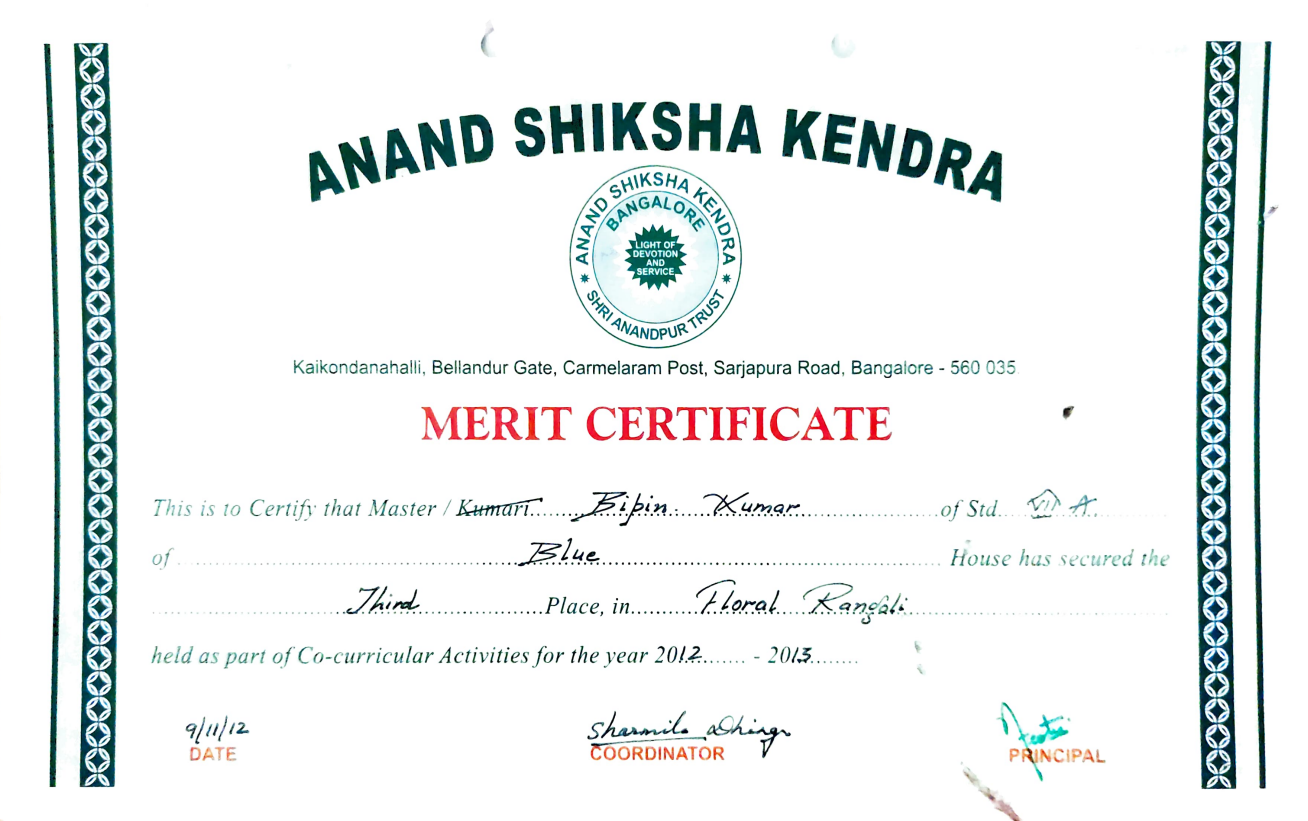 ANAND SHIKSHA KENDRA
ANAND SHIKSHA KENDRA
BANGALORE
LIGHT OF
DEVOTION
AND
SERVICE
SHRI ANANDPUR TRUST
Kaikondanahalli, Bellandur Gate, Carmelaram Post, Sarjapura Road, Bangalore - 560 035.
MERIT CERTIFICATE
This is to Certify that Master / Kumari Bipin Kumar of Std VII A
of Blue House has secured the
Third Place, in Floral Rangoli
held as part of Co-curricular Activities for the year 2012 - 2013
9/11/12 Sharmila Dhingr
DATE COORDINATOR PRINCIPAL